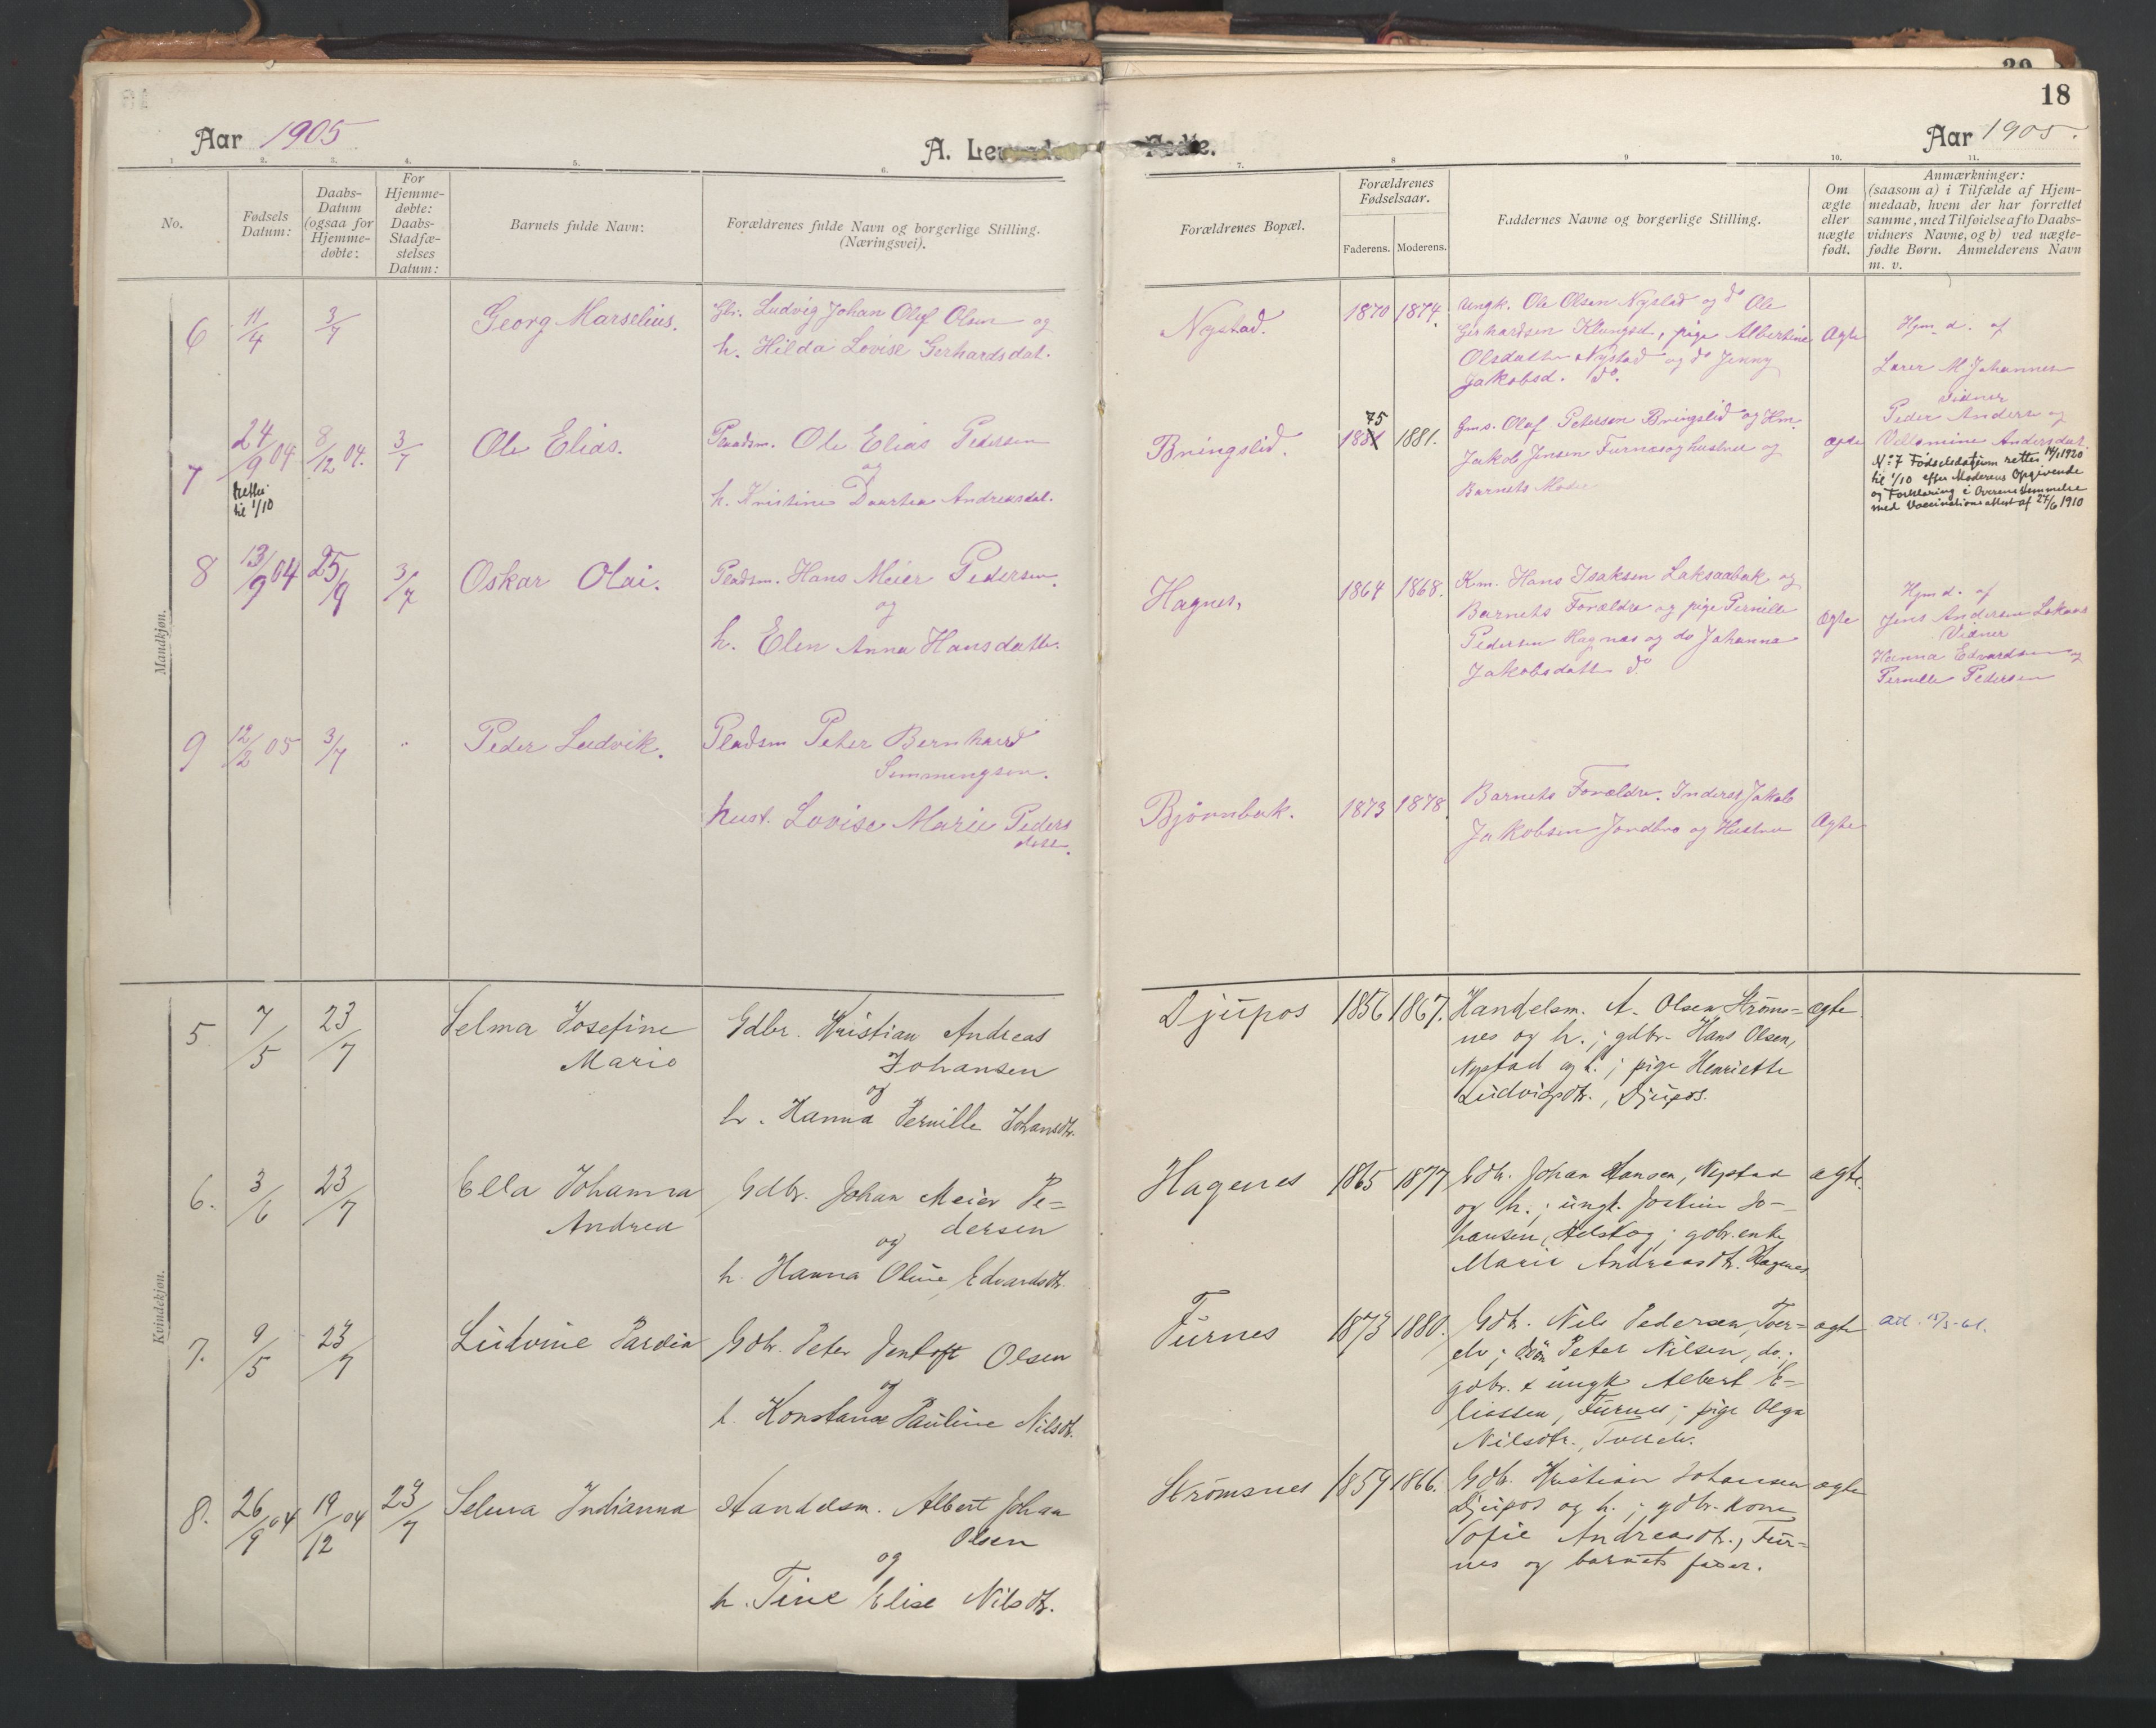 18
Aar 1905
A. Levende
Fødte.
Aar 1905.
1. 2. 3. 4. 5. 6. 7. 8 9 10. 11.
No.
Fødsels Datum:
Daabs-
Datum
(ogsaa for
Hjemme-
døbte:
For
Hjemme-
døbte:
Daabs-
Stadfæ-
stelses
Datum:
Barnets fulde Navn:
Forældrenes fulde Navn og borgerlige Stilling.
(Næringsvei).
Forældrenes Bopæl.
Forældrenes
Fødselsaar.
Faderens. Moderens.
Faddernes Navne og borgerlige Stilling.
Om
ægte
eller
uægte
født.
Anmærkninger:
(saasom a) i Tilfælde af Hjem-
medaab, hvem der har forrettet
samme, med Tilføielse af to Daabs-
vidners Navne, og b) ved uægte-
fødte Børn. Anmelderens Navn
m. v.
Mandkjøn.
6
11/4
3/7
Georg Marselius.
Gbr. Ludvig Johan Oluf Olsen og
h. Hilda Lovise Gerhardsdat.
Nystad.
1870 1874.
Ungk. Ole Olsen Nystad og do Ole
Gerhardsen Klungset, pige Albertine
Olsdatter Nystad og do Jenny
Jakobsd. do.
Ægte
Hjm. d. af
Lærer M Johannesen
7
24/9 04
rettet
til 1/10
8/12 04.
3/7
Ole Elias.
Pladsm. Ole Elias Pedersen
og
h. Kristine Daartea Andreasdat.
Bringslid.
75
1881 1881.
Gms. Olaf Peterson Bringslid og Hm.
Jakob Jensen Furnes og hustru og
Barnets Moder
ægte
Vidner
Peder Anders og
Villamine Andersdat.
No 7 Fødselsdatum rettet 14/1 1920
til 1/10 efter Moderens Opgivende
og Forklaring i Overensstemmelse
med Vaccinationsattest af 27/6 1910
8
13/9 04
25/9
3/7
Oskar Olai.
Pladsm. Hans Meier Pedersen.
og
h. Elen Anna Hansdatter.
Hagnes,
1864 1868.
Km. Hans Isaksen Laksaabak og
Barnets Forældre og pige Pernille
Pedersen Hagnes og do Johanna
Jakobsdatter do
Ægte
Hjm d. af
Jens Andersen
Vidner
Hanna Edvardsen og
Pernille Pedersen
9
12/2 05
3/7
"
Peder Ludvik.
Pladsm Peter Bernhard
Simmingsen.
hust. Lovise Marie Peders
datt.
Bjørnbak.
1873 1878.
Barnets Forældre. Inderst Jakob
Jakobsen Jordbro og Hustru
Ægte
Kvindekjøn.
5
7/5
23/7
Selma Josefine
Marie
Gdbr. Kristian Andreas
Johansen
og
h. Hanna Pernille Johansdtr.
Djupos
1856 1867.
Handelsm. A. Olsen Strøms=
nes og h.; gdbr. Hans Olsen,
Nystad og h.; pige Henriette
Ludvigsdtr., Djupos.
ægte
6.
3/6
23/7
Ella Johanna
Andrea
Gdbr. Johan Meier Pe=
dersen
og
h. Hanna Oline Edvardsdtr.
Hagenes
1865 1877
Gdbr. Johan Hansen, Nystad
og h.; ungk. Joakim Jo-
hansen, Helskog; gdbr. enke
Marie Andreasdtr. Hagenes
ægte.
7.
9/5
23/7
Ludvine Pardia
Gdbr. Peter Jentoft Olsen
og
h. Konstanse Pauline Nilsdtr.
Furnes
1873 1880.
Gdbr. Nils Pedersen, Tver=
elv; Peter Nilsen, do.;
gdbr. & ungk Albert E=
liassen, Furnes; pige Olga
Nilsdtr., Tverelv.
ægte
att. 15/5-61.
8.
26/9 04
19/12 04
23/7
Selma Indianna
Handelsm. Albert Johan
Olsen
og
h. Tine Elise Nilsdtr.
Strømsnes
1859 1866.
Gdbr. Kristian Johansen
Djupos og h.; gdbr. kone
Sofie Andreasdtr., Fur=
nes og barnets fader.
ægte